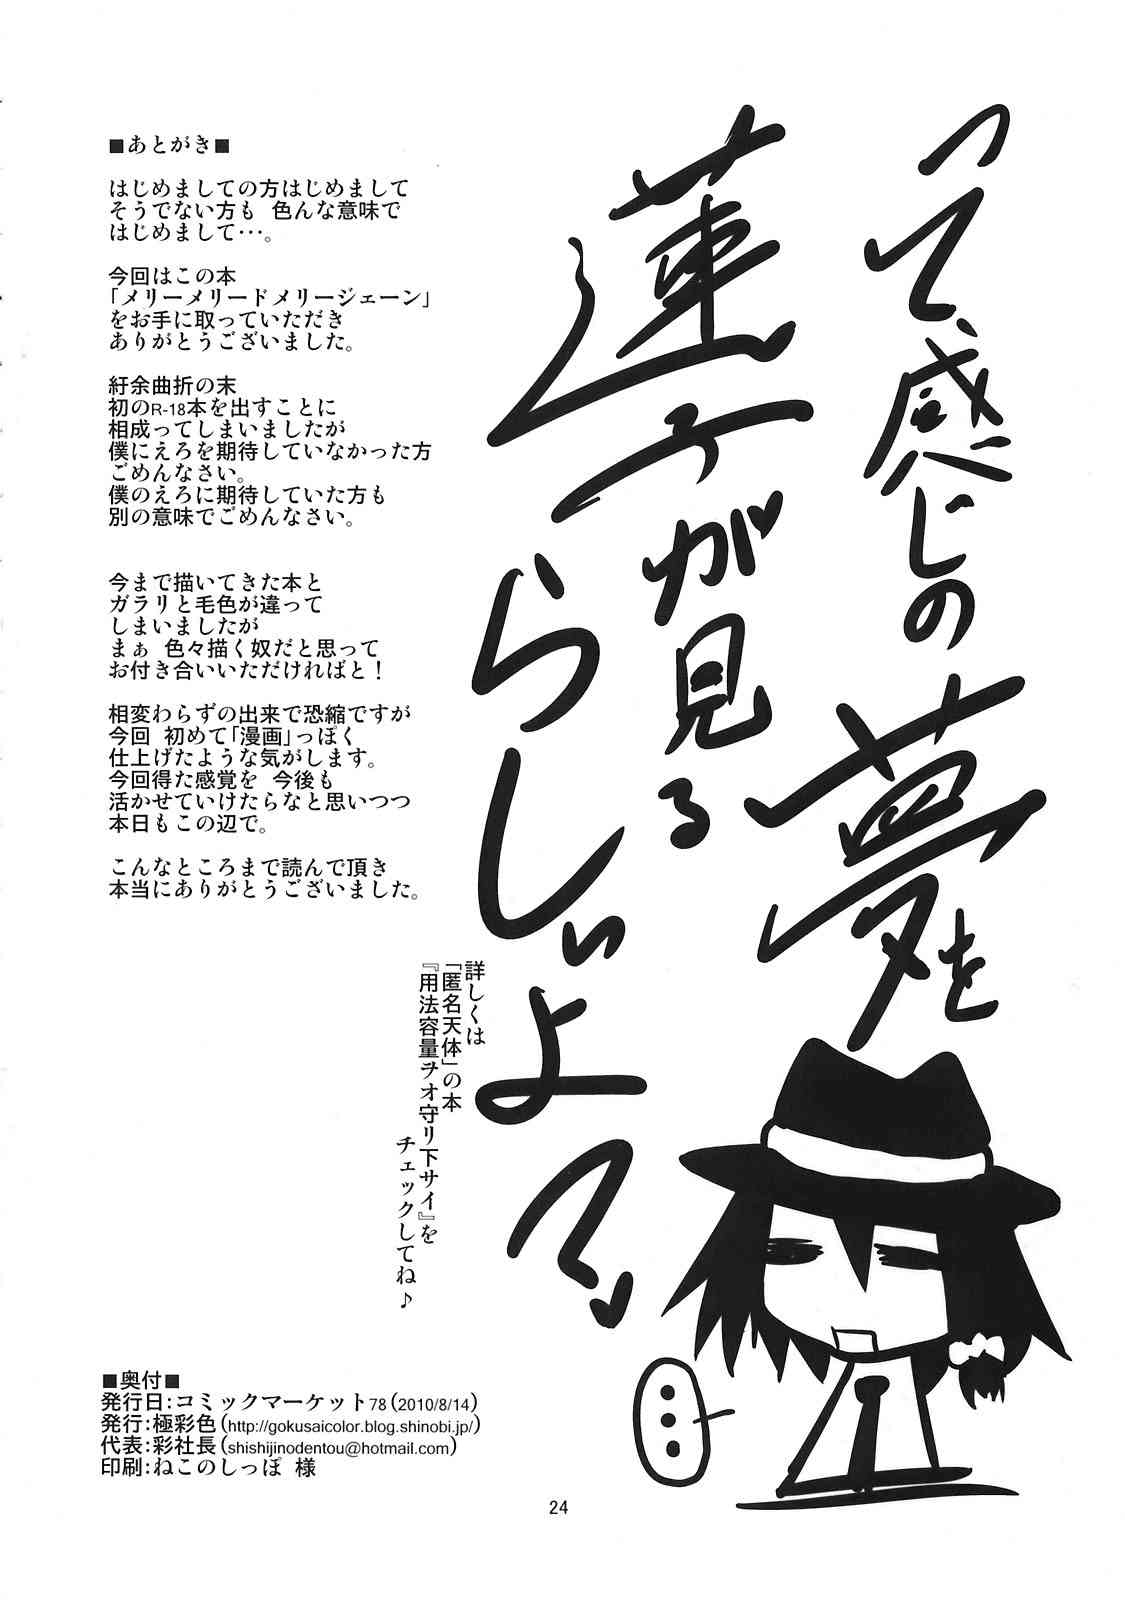 って、感じの
夢を
蓮子が見る
らしいよ
■あとがき■
はじめましての方はじめまして
そうでない方も 色んな意味で
はじめまして･･･。
今回はこの本
「メリーメリードメリージェーン」
をお手に取っていただき
ありがとうございました。
紆余曲折の末
初のR-18本を出すことに
相成ってしまいましたが
僕にえろを期待していなかった方
ごめんなさい。
僕のえろに期待していた方も
別の意味でごめんなさい。
今まで描いてきた本と
ガラリと毛色が違って
しまいましたが
まぁ 色々描く奴だと思って
お付き合いいただければと！
相変わらずの出来で恐縮ですが
今回 初めて「漫画」っぽく
仕上げたような気がします。
今回得た感覚を 今後も
活かせていけたらなと思いつつ
本日もこの辺で。
こんなところまで読んで頂き
本当にありがとうございました。
詳しくは
「匿名天体」の本
『用法容量ヲオ守リ下サイ』を
チェックしてね♪
…
■奥付■
発行日：コミックマーケット78（2010/8/14）
発行：極彩色（http://gokusaicolor.blog.shinobi.jp/）
代表：彩社長（shishijinodentou@hotmail.com）
印刷：ねこのしっぽ 様
24